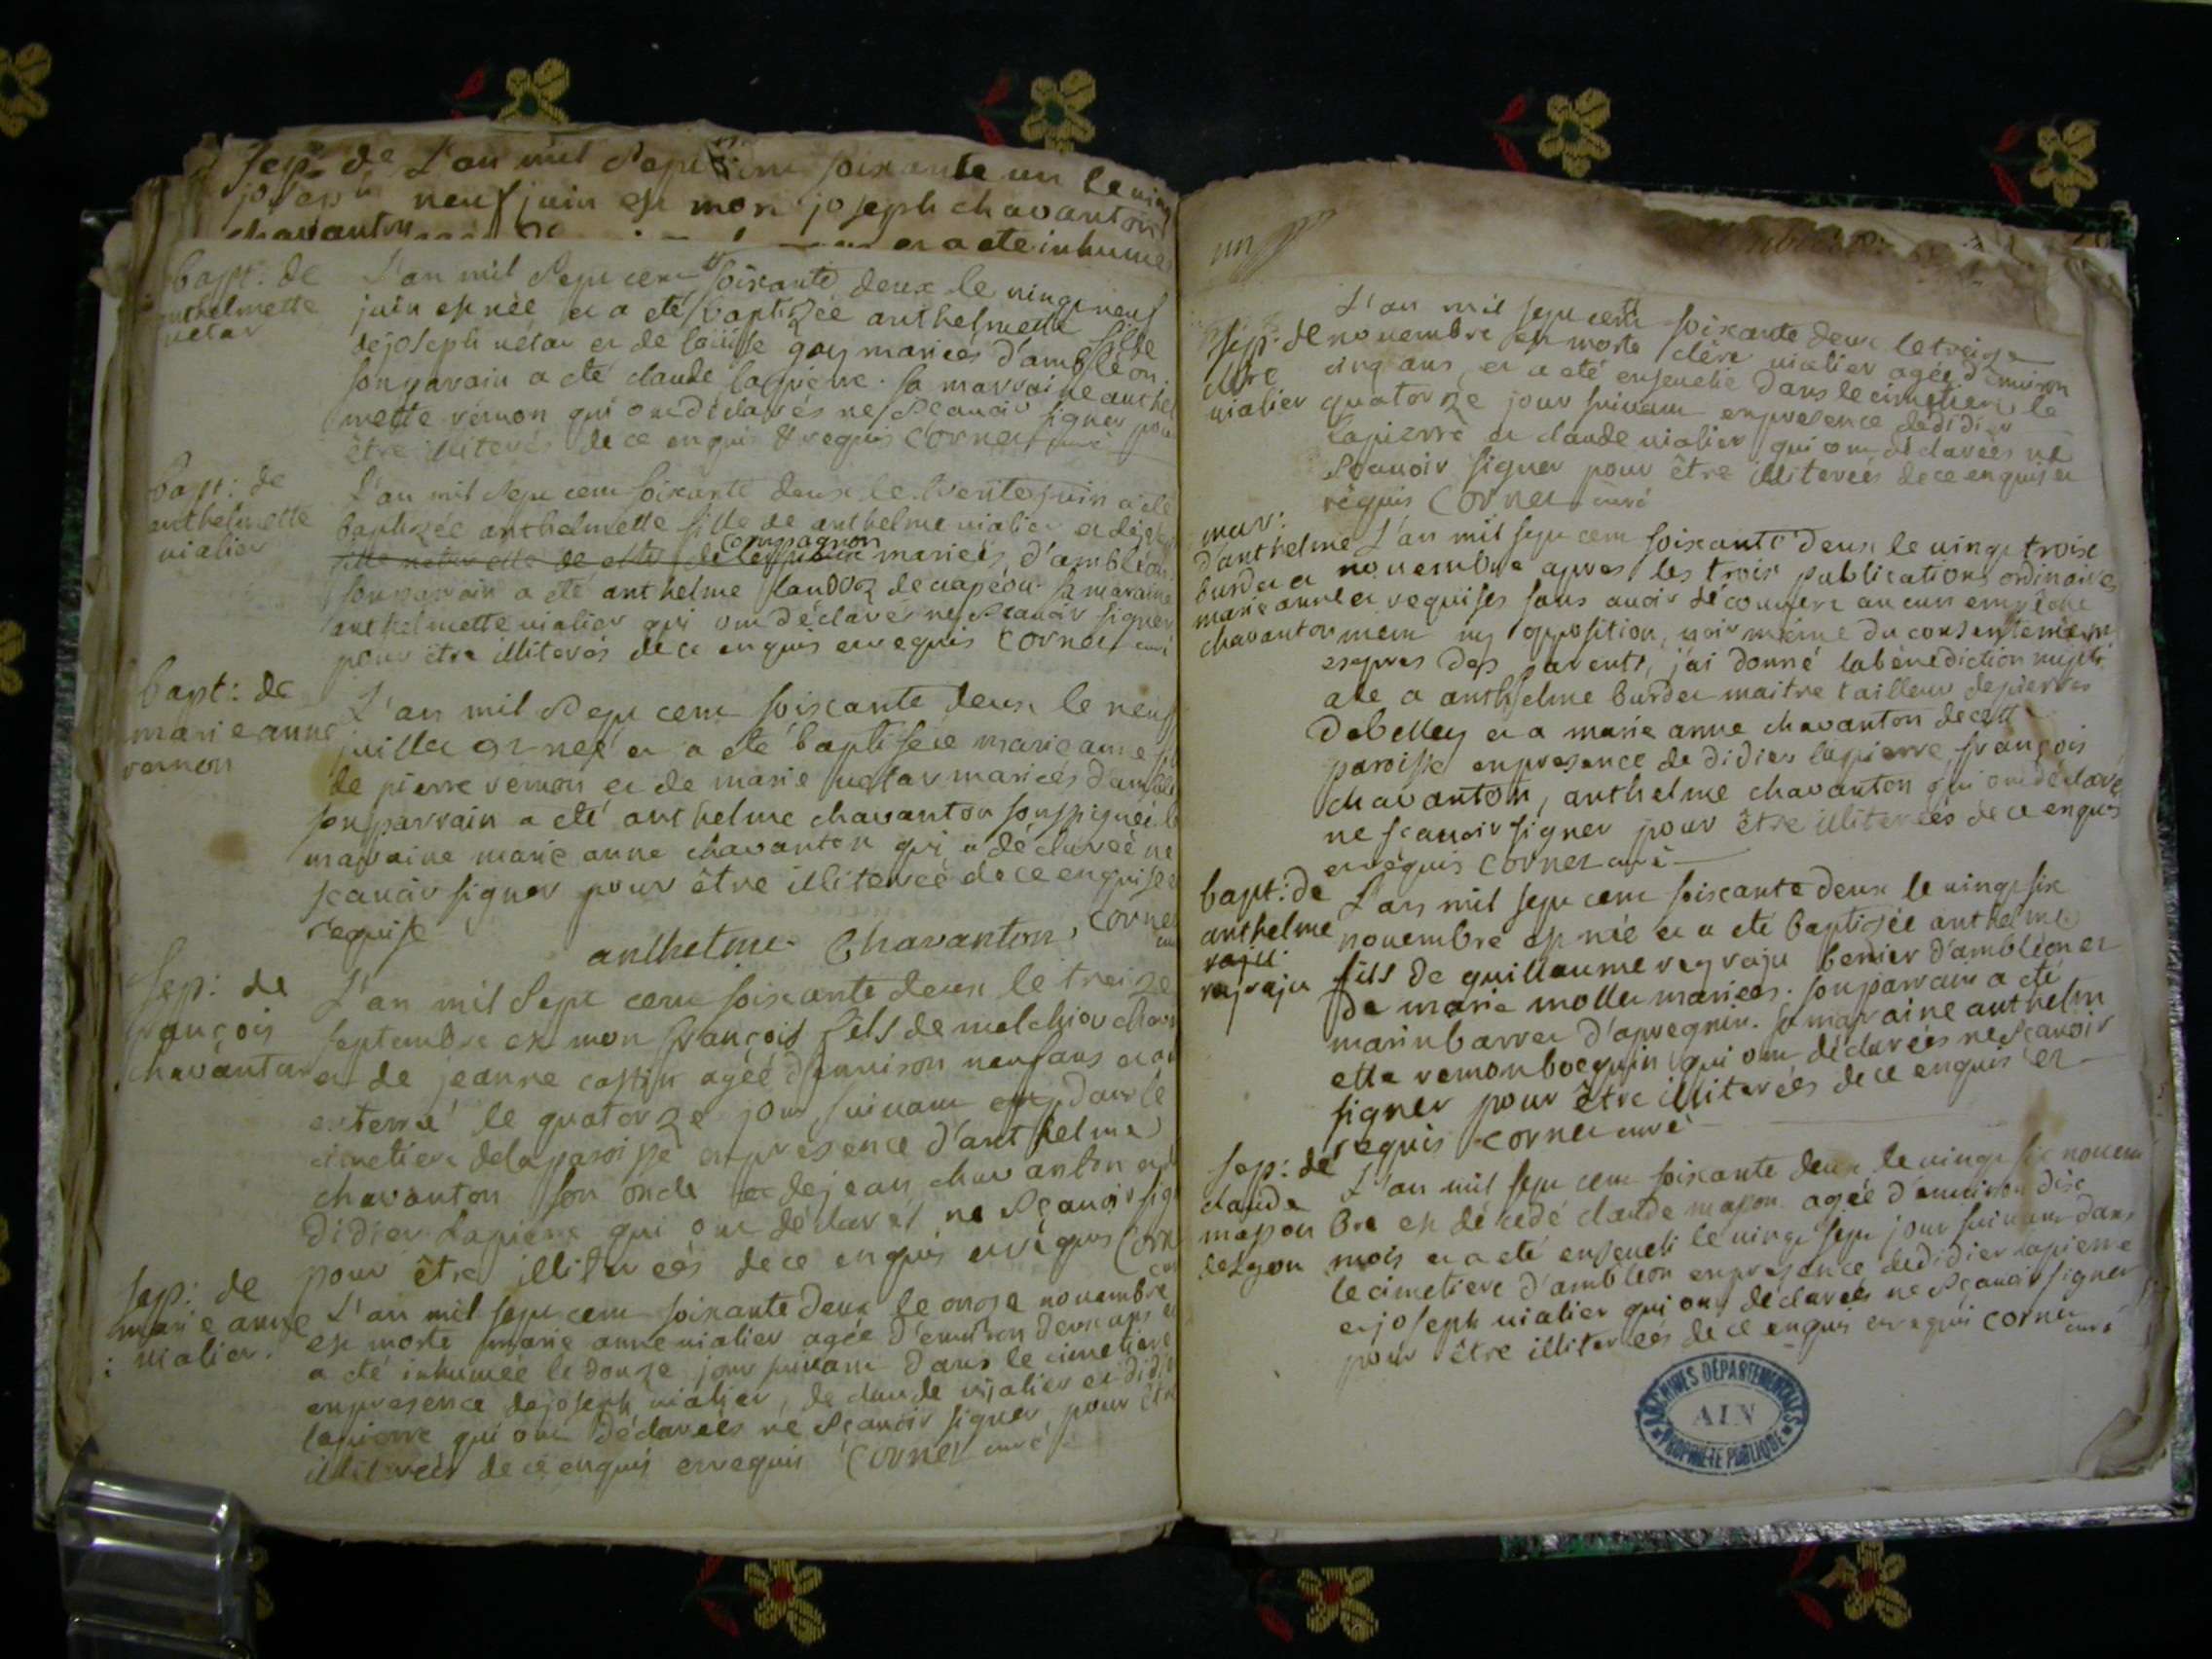 sep: de L'an mil sept cent soixante un le vingt
joseph neuf juin est mort joseph chavanton
chavanton
et a ete inhumé
bapt: de
anthelmette
netar
L'an mil sept cent soixante deux le vingt neuf
juin est née et a eté baptizée anthelmette fille
de joseph netar et de loüise goy mariées d'ambléon.
son parain a eté claude lapierre. sa marraine anthel
mette vernon qui ont déclarés ne sçauoir signer pour
être illiterés de ce enquis & requis cornet curé
bapt: de
anthelmette
uialier
L'an mil sept cent soixante deux le trente juin a eté
baptizée anthelmette fille de anthelme uialier et de
compagnon
mariées d'ambléon
son parrain a eté anthelme landoz de sa maraine
anthelmette uialier qui ont déclarés ne sçauoir signer
pour être illiterés de ce enquis et requis cornet curé
bapt: de
marie anne
vernon
L'an mil sept cent soixante deux le neuf
juillet est neé et a eté baptisée marie anne
de pierre vernon et de marie netar mariées
son parrain a eté anthelme chavanton soussigné
marraine marie anne chavanton qui a déclareé ne
scauoir signer pour être illitereé de ce enquise
requise
anthelme Chavanton, cornet
Sep: de
françois
chavanton
L'an mil sept cent soixante deux le treize
septembre est mort françois fils de melchior
et de jeanne agéé d'environ neuf ans et a
enterré le quatorze jour suivant dans le
cimetiere de la paroisse en presence d'anthelme
chavanton son oncle et de jean chavanton et
didier Lapierre qui ont déclarés ne sçauoir
pour être illitereés de ce enquis et requis
sep: de
marie anne
uialier.
L'an mil sept cent soixante deux le onze novembre
est morte marie anne uialier agée d'environ deux ans et
a eté inhumeé le douze jour suivant dans le cimetiere
en presence de joseph uialier, de claude uialier et
lapierre qui ont déclareés ne sçauoir signer, pour être
illitereés de ce enquis et requis cornet curé
L'an mil sept cent soixante deux le treize
sep: de
clere
uialier
nouembre est morte clere uialier agée d'environ
cinq ans, et a eté enseuelie dans le cimetiere le
quatorze jour suivant en presence de didier
lapierre et claude uialier qui ont déclareés ne
sçauoir signer pour être illitereés de ce enquis et
requis cornet curé
mar:
d'anthelme
burdet et
marie anne
chavanton
L'an mil sept cent soixante deux le vingt trois
nouembre apres les trois publications ordinaires
et requises sans auoir découuert aucun empêche
ment ny opposition, uoir même du consentement
expres des parents, j'ai donné la bénediction nupti
ale a anthelme burdet maitre tailleur de pierres
de belley et a marie anne chavanton de cette
paroisse en presence de didier lapierre, françois
chavanton, anthelme chavanton qui ont déclaré
ne scauoir signer pour être illitereés de ce enquis
et requis cornet curé
bapt: de
anthelme
raju
L'an mil sept cent soixante deux le vingt six
nouembre est née et a eté baptizée anthelme
fils de guillaume d'ambléon et
de marie mollet mariees. son parrain a eté
marin barret d'apregnin. sa marraine anthelm
ette vernon bocquin qui ont déclareés ne sçauoir
signer pour être illitereés de ce enquis et
requis cornet curé
sep: de
claude
mason
de lyon
L'an mil sept cent soixante deux le vingt six nouem
bre est décedé claude mason agée d'environ dix
mois et a eté enseueli le vingt sept jour suiuant dans
le cimetiere d'ambléon en presence de didier lapierre
et joseph uialier qui ont déclareés ne sçauoir signer
pour être illitereés de ce enquis et requis cornet
curé
ARCHIVES DÉPARTEMENTALES
AIN
PROPRIÉTÉ PUBLIQUE